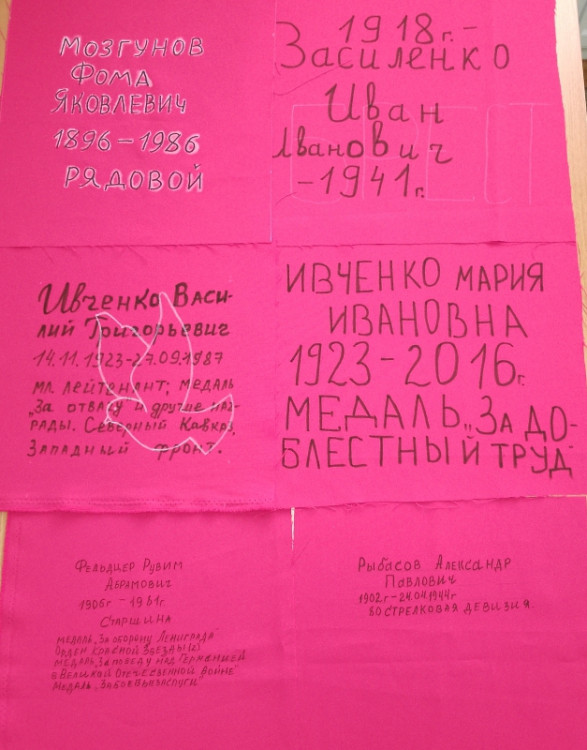 Мозгунов
Фома
Яковлевич
1896-1986
РЯДОВОЙ
1918г.-
Засиленко
Иван
Иванович
-1941г.
Ивченко Васи-
лий Григорьевич
14.11.1923-27.09.1987
мл лейтенант; медаль
„За отвагу и другие наг-
рады. Северный Кавказ,
Западный фронт.
ИВЧЕНКО МАРИЯ
ИВАНОВНА
1923-2016г.
МЕДАЛЬ „ЗА ДО-
БЛЕСТНЫЙ ТРУД
Фельдшер Рувим
Абрамович
1906г-1961г.
Старшина
медаль „За оборону Ленинграда"
Орден Красной Звезды(2)
медаль „За победу над Германией
в Великой Отечественной войне"
Медаль „За боевые заслуги"
Рыбасов Александр
Павлович
1902г-24.04.1944г.
80 СТРЕЛКОВАЯ ДЕВИЗИЯ.